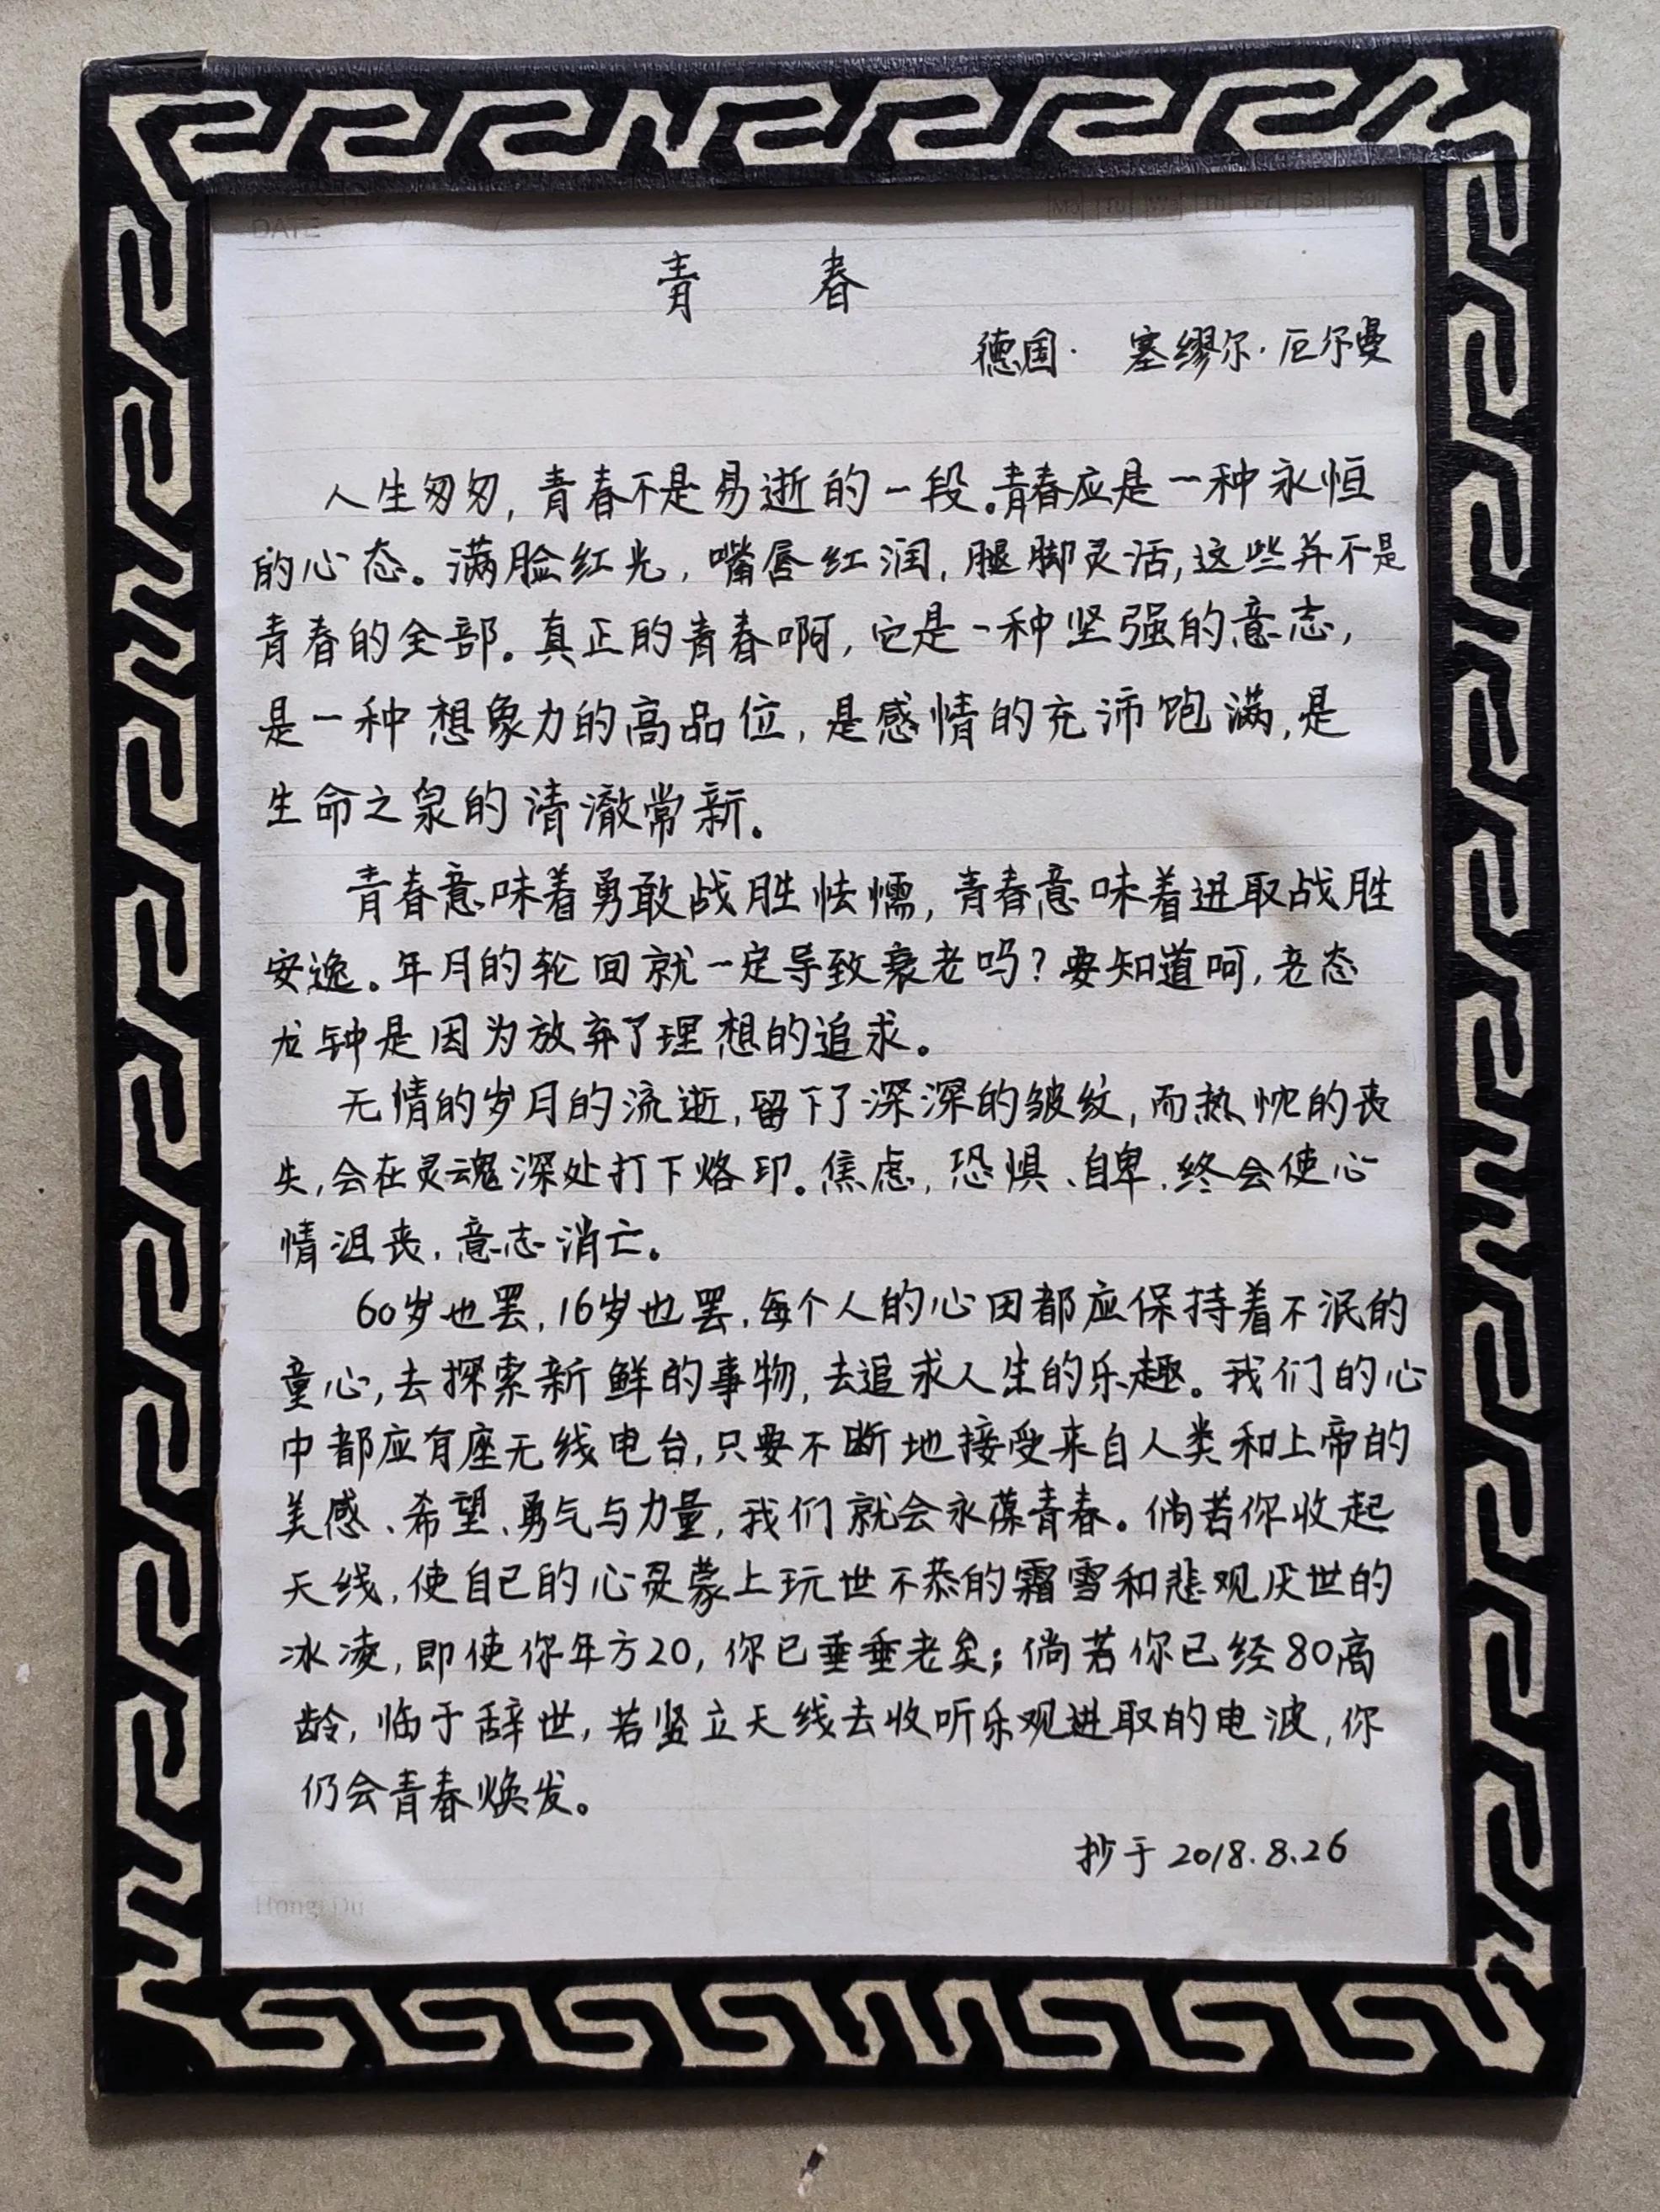 DATE
Mo Tu We Th Fr Sa Su
青 春
德国· 塞缪尔·厄尔曼
人生匆匆,青春不是易逝的一段。青春应是一种永恒
的心态。满脸红光,嘴唇红润,腿脚灵活,这些并不是
青春的全部。真正的青春啊,它是一种坚强的意志,
是一种想象力的高品位,是感情的充沛饱满,是
生命之泉的清澈常新。
青春意味着勇敢战胜怯懦,青春意味着进取战胜
安逸。年月的轮回就一定导致衰老吗?要知道呵,老态
龙钟是因为放弃了理想的追求。
无情的岁月的流逝,留下了深深的皱纹,而热忱的丧
失,会在灵魂深处打下烙印。焦虑,恐惧、自卑,终会使心
情沮丧,意志消亡。
60岁也罢,16岁也罢,每个人的心田都应保持着不泯的
童心,去探索新鲜的事物,去追求人生的乐趣。我们的心
中都应有座无线电台,只要不断地接受来自人类和上帝的
美感、希望、勇气与力量,我们就会永葆青春。倘若你收起
天线,使自己的心灵蒙上玩世不恭的霜雪和悲观厌世的
冰凌,即使你年方20,你已垂垂老矣;倘若你已经80高
龄,临于辞世,若竖立天线去收听乐观进取的电波,你
仍会青春焕发。
抄于2018.8.26